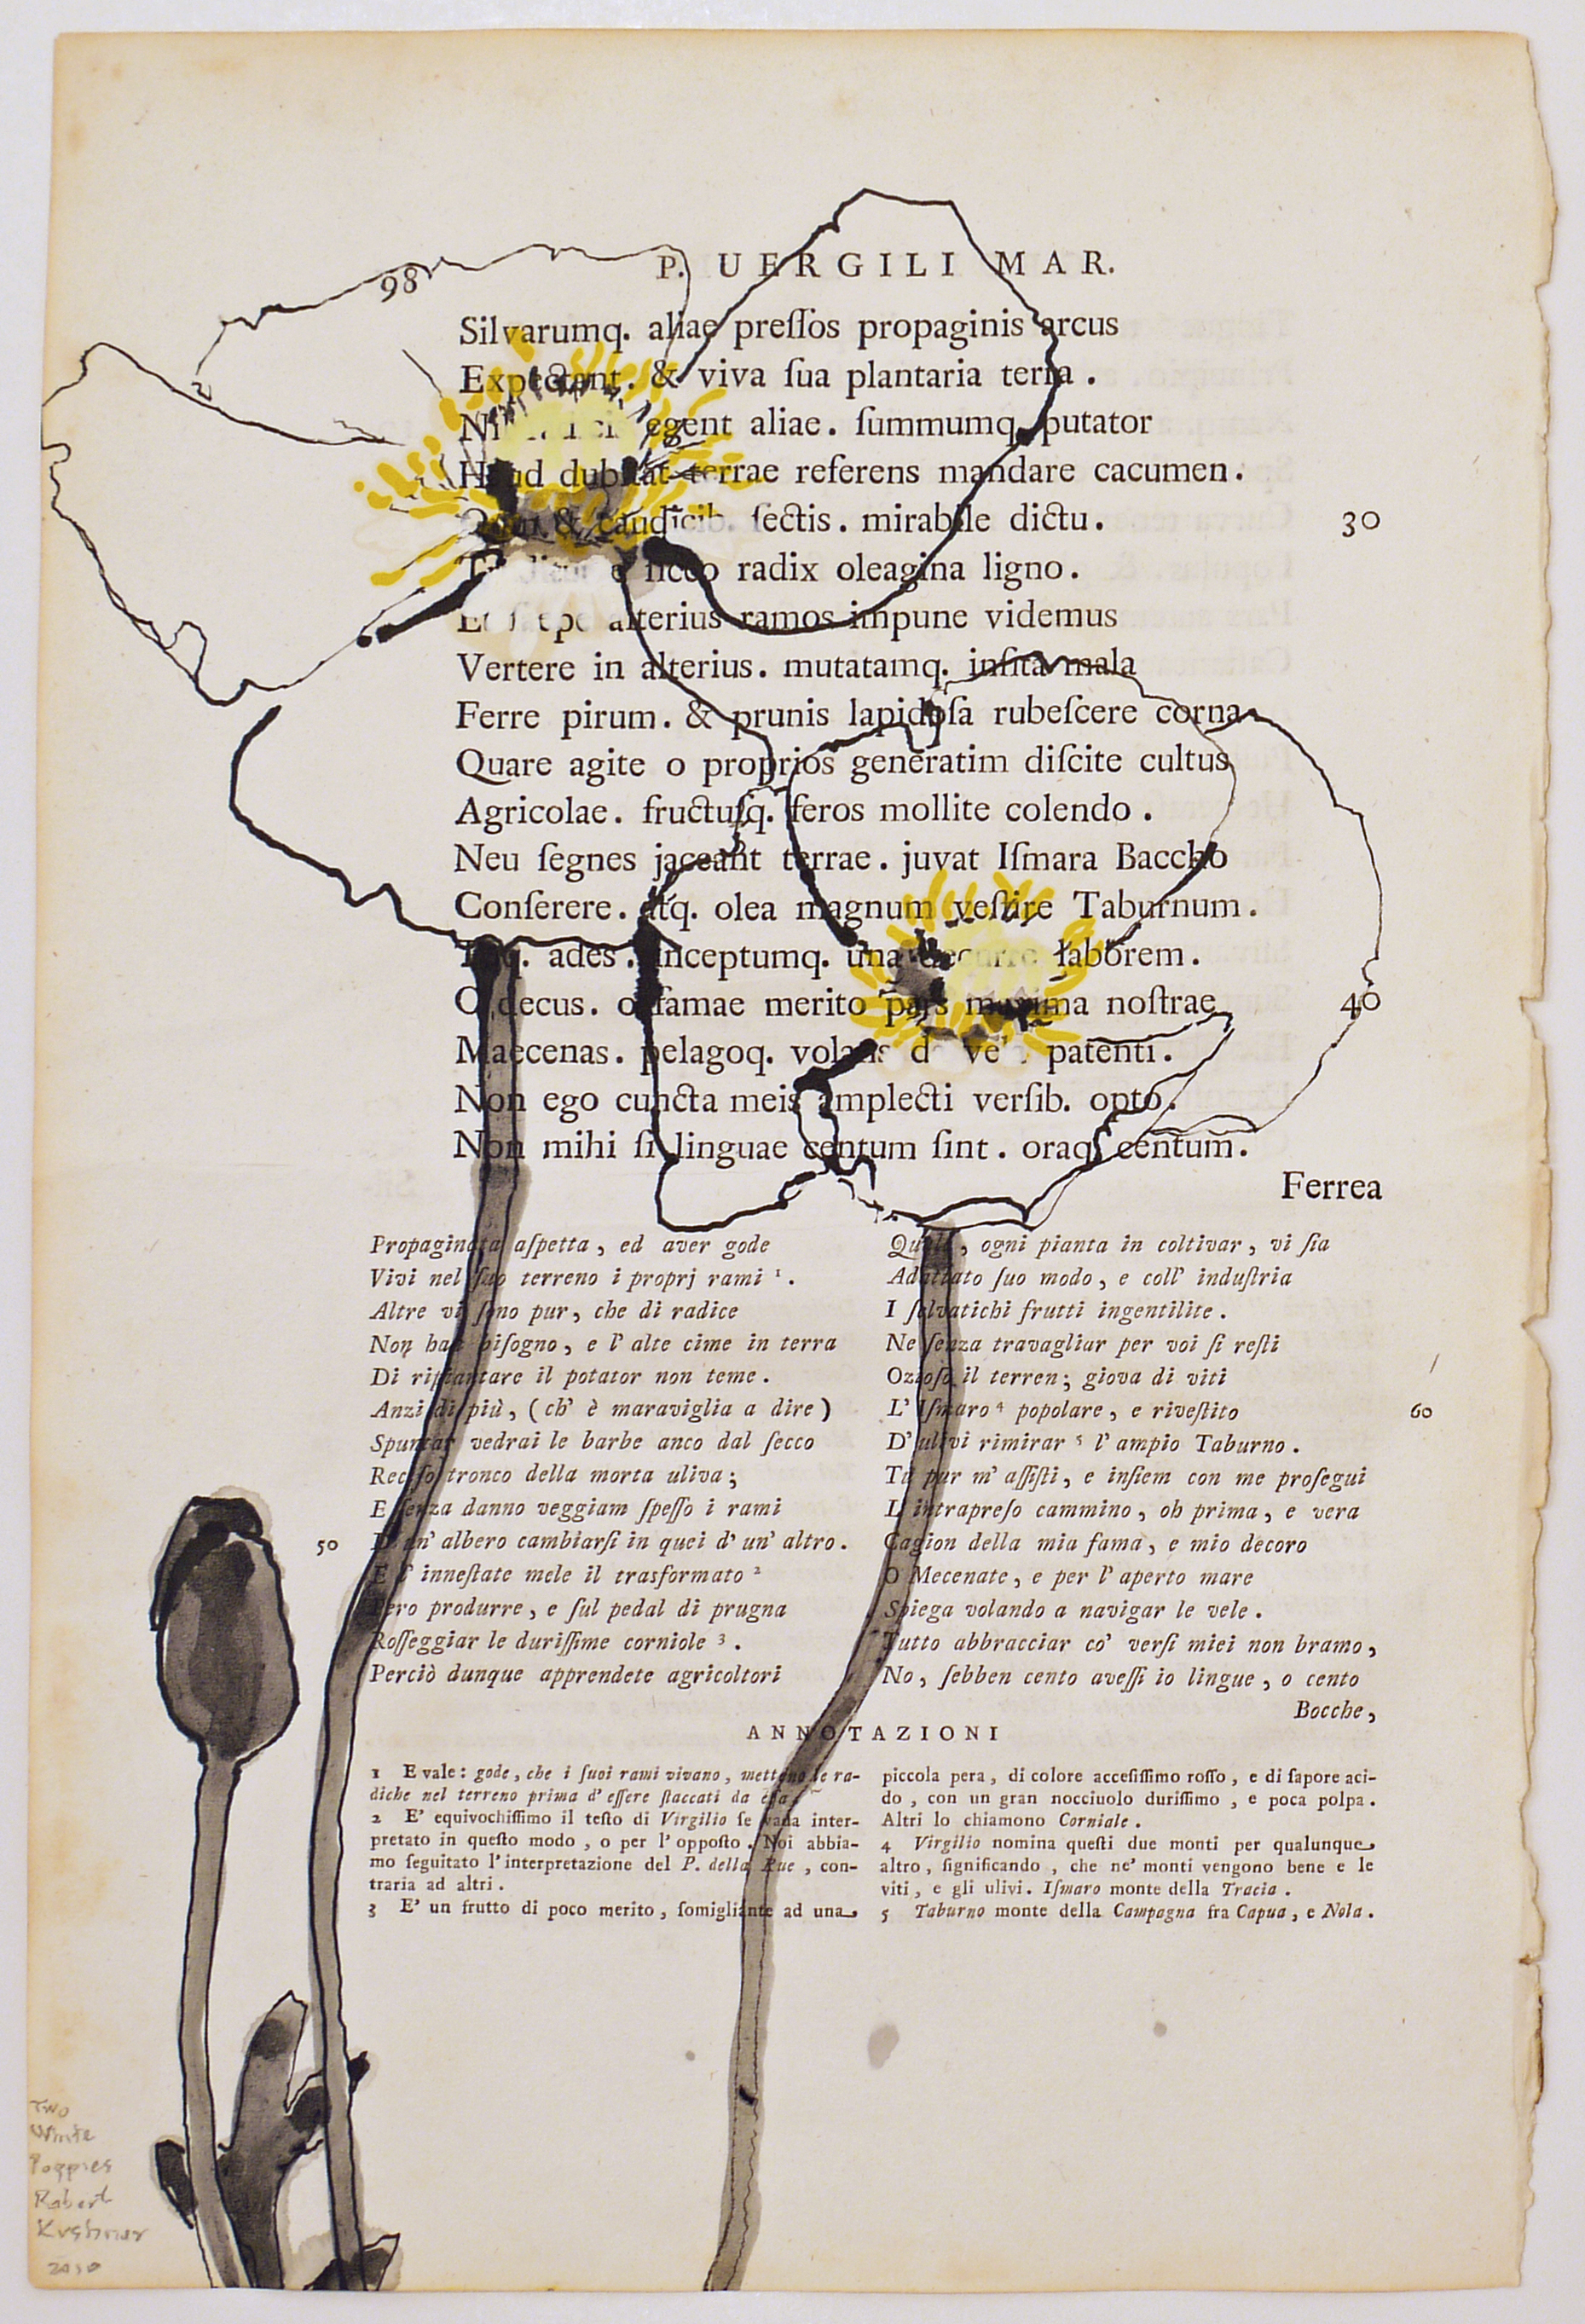 98
P. UERGILI MAR.
Silvarumq. aliae preſſos propaginis arcus
Expectant. & viva ſua plantaria terra .
egent aliae . ſummumq. putator
Haud dubitat terrae referens mandare cacumen .
& caudicib. ſectis . mirabile dictu .
30
e ſicco radix oleagina ligno .
Et ſaepe alterius ramos impune videmus
Vertere in alterius . mutatamq. inſita mala
Ferre pirum . & prunis lapidoſa rubeſcere corna
Quare agite o proprios generatim diſcite cultus
Agricolae . fructuſq. feros mollite colendo .
Neu ſegnes jaceant terrae . juvat Iſmara Baccho
Conſerere . atq. olea magnum veſtire Taburnum .
Tuq. ades . inceptumq. una decurre laborem .
O decus . o famae merito pars maxima noſtrae
40
Maecenas . pelagoq. volans patenti .
Non ego cuncta meis amplecti verſib. opto .
Non mihi ſi linguae centum ſint . oraq. centum .
Ferrea
Propaginata aſpetta , ed aver gode
Vivi nel ſuo terreno i proprj rami ¹ .
Altre vi ſono pur , che di radice
Non han biſogno , e l' alte cime in terra
Di ripiantare il potator non teme .
Anzi di più , ( ch' è maraviglia a dire )
Spuntar vedrai le barbe anco dal ſecco
Reciſo tronco della morta uliva ;
E ſenza danno veggiam ſpeſſo i rami
50
D' un' albero cambiarſi in quei d' un' altro .
E l' inneſtate mele il trasformato ²
Pero produrre , e ſul pedal di prugna
Roſſeggiar le duriſſime corniole ³ .
Perciò dunque apprendete agricoltori
Quale , ogni pianta in coltivar , vi ſia
Adattato ſuo modo , e coll' induſtria
I ſalvatichi frutti ingentilite .
Ne ſenza travagliar per voi ſi reſti
Ozioſo il terren ; giova di viti
L' Iſmaro ⁴ popolare , e riveſtito
60
D' ulivi rimirar ⁵ l' ampio Taburno .
Tu pur m' aſſiſti , e inſiem con me proſegui
L' intrapreſo cammino , oh prima , e vera
Cagion della mia fama , e mio decoro
O Mecenate , e per l' aperto mare
Spiega volando a navigar le vele .
Tutto abbracciar co' verſi miei non bramo ,
No , ſebben cento aveſſi io lingue , o cento
Bocche ,
ANNOTAZIONI
1 E vale : gode , che i ſuoi rami vivano , mettono le ra-
diche nel terreno prima d' eſſere ſtaccati da eſſa .
2 E' equivochiſſimo il teſto di Virgilio ſe vada inter-
pretato in queſto modo , o per l' oppoſto . Noi abbia-
mo ſeguitato l' interpretazione del P. della Rue , con-
traria ad altri .
3 E' un frutto di poco merito , ſomigliante ad una
piccola pera , di colore acceſiſſimo roſſo , e di ſapore aci-
do , con un gran nocciuolo duriſſimo , e poca polpa .
Altri lo chiamono Corniale .
4 Virgilio nomina queſti due monti per qualunque
altro , ſignificando , che ne' monti vengono bene e le
viti , e gli ulivi . Iſmaro monte della Tracia .
5 Taburno monte della Campagna fra Capua , e Nola .
Two
White
Poppies
Robert
Kushner
2010